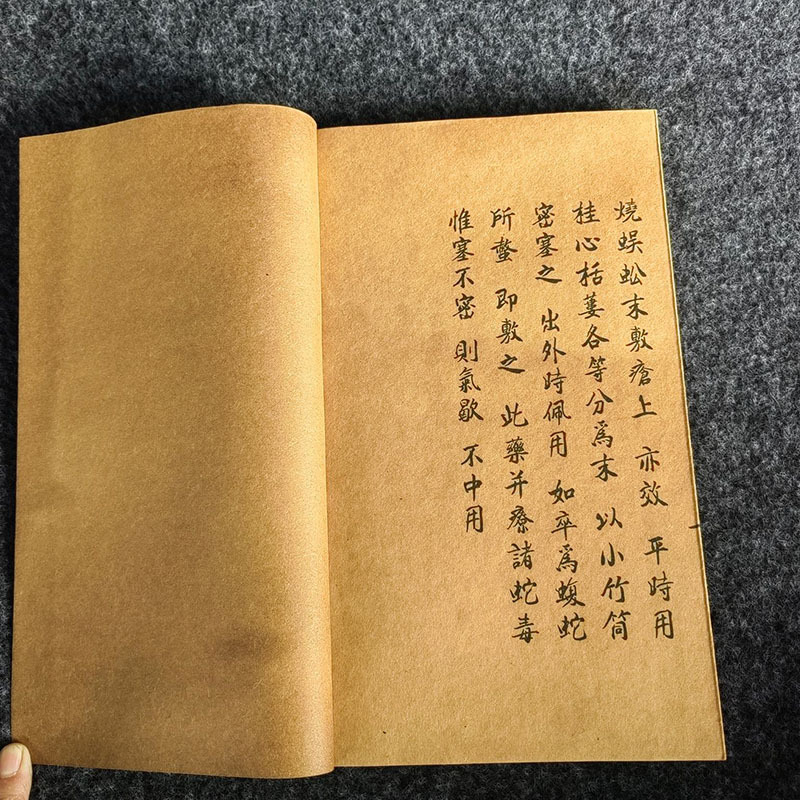 燒蜈蚣末敷瘡上 亦效 平時用
桂心栝蔞各等分爲末 以小竹筒
密塞之 出外時佩用 如卒爲蝮蛇
所螫 即敷之 此藥并療諸蛇毒
惟塞不密 則氣歇 不中用